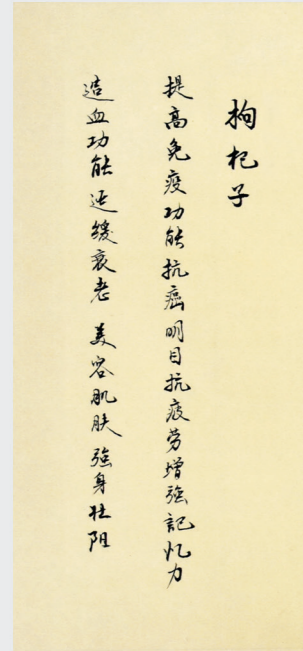 枸杞子
提高免疫功能抗癌明目抗疲劳增強記忆力
造血功能延缓衰老美容肌肤強身壮阳